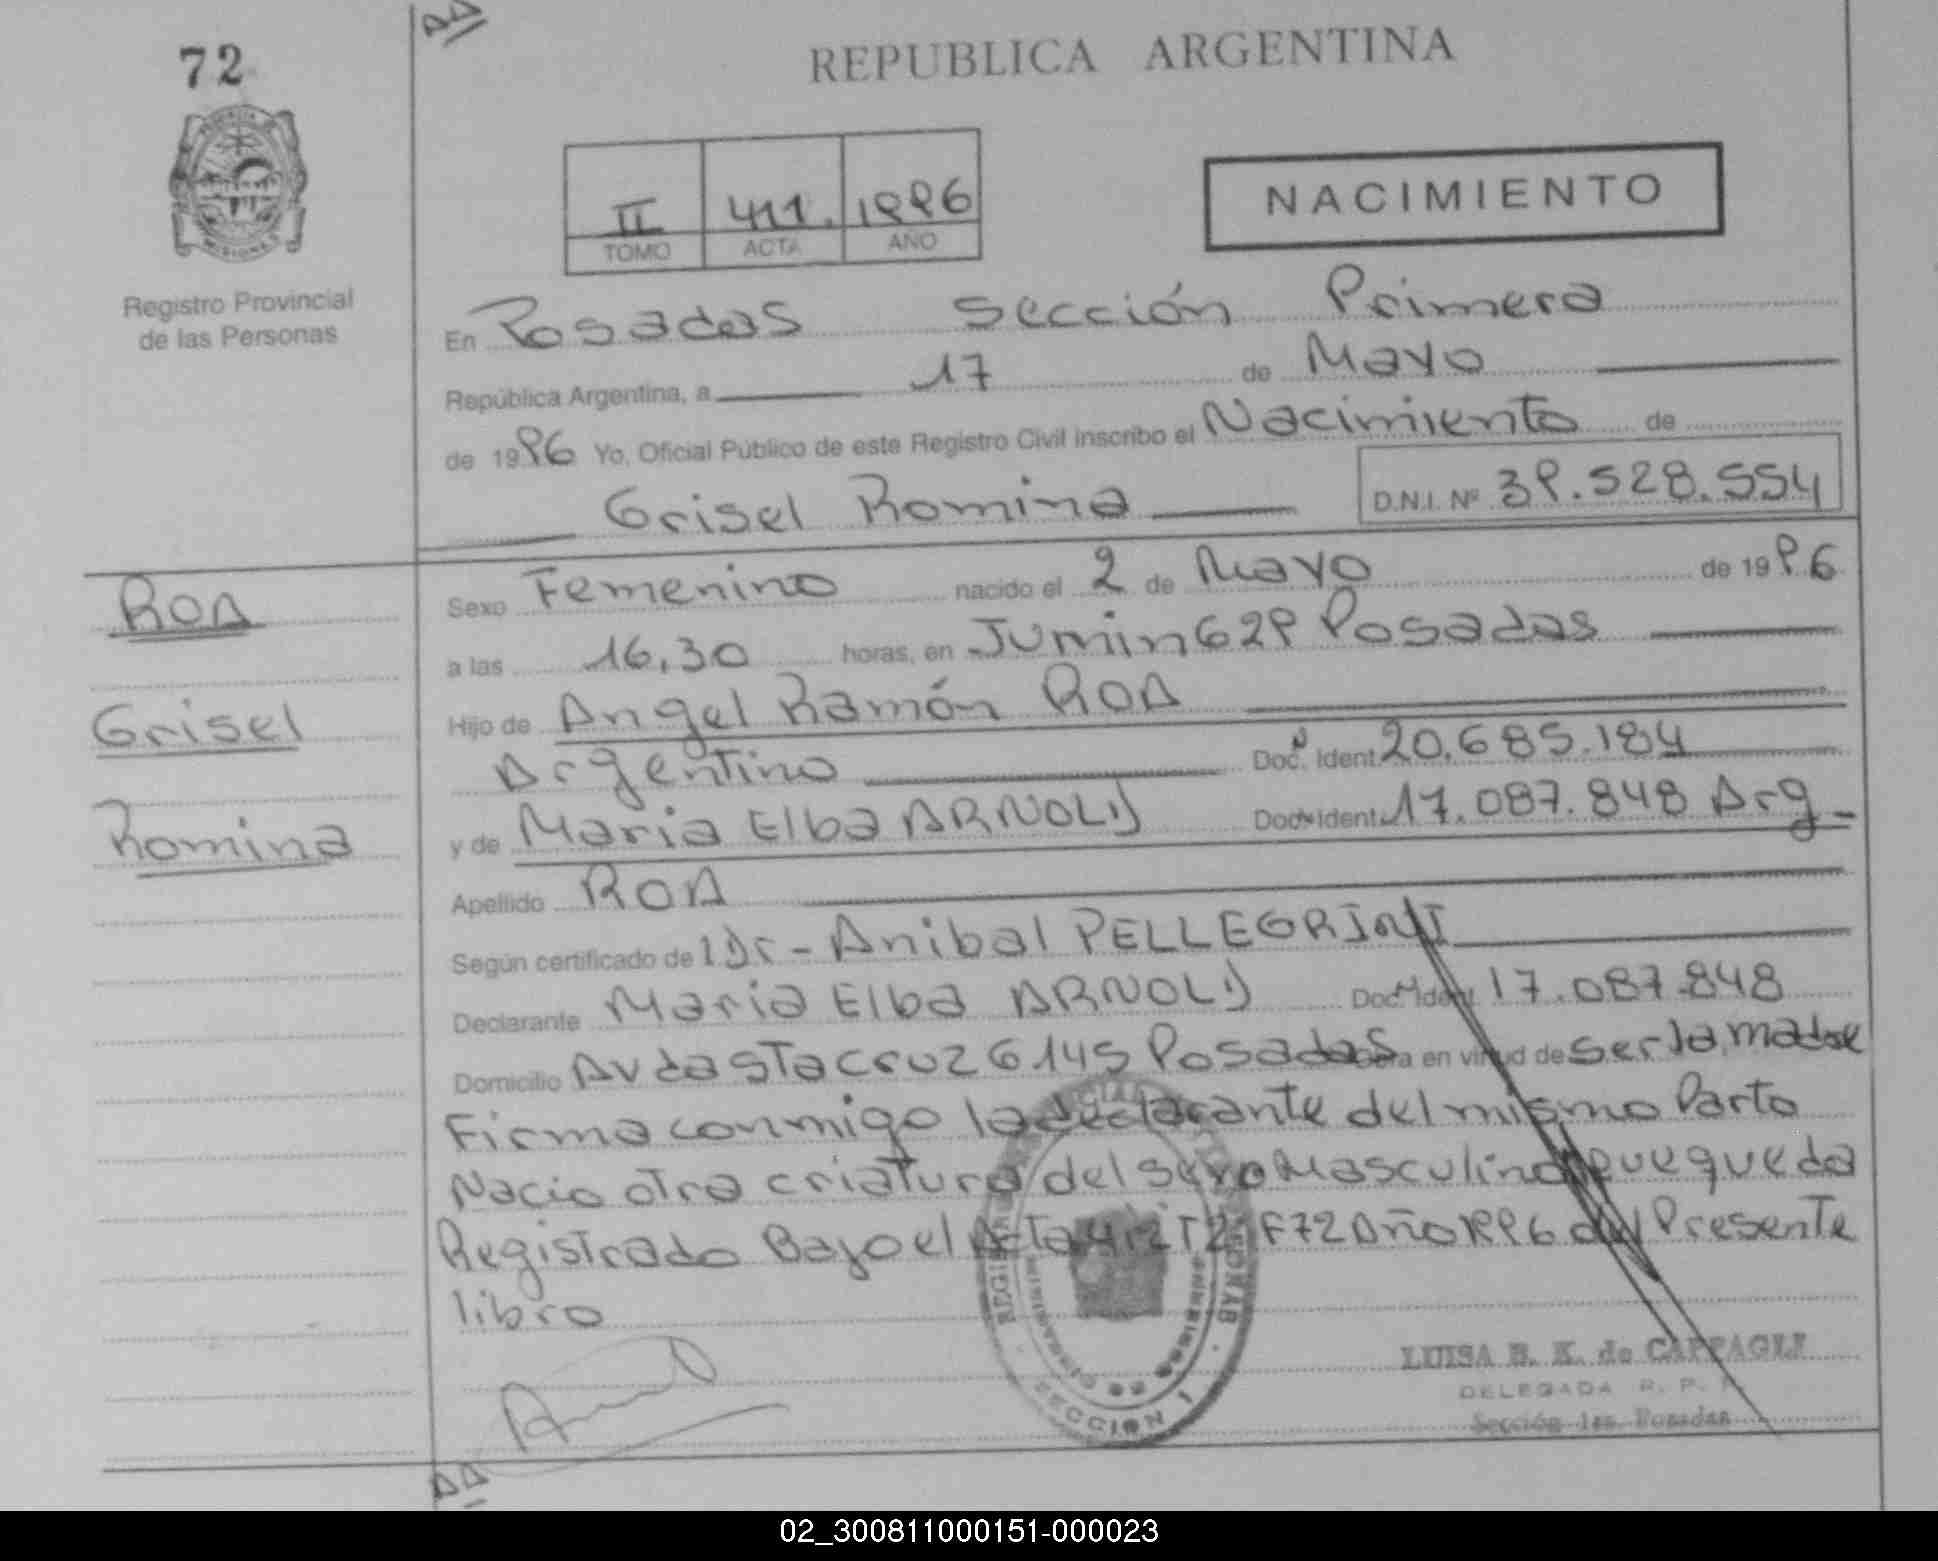 72
REPUBLICA ARGENTINA
PROVINCIA DE MISIONES
Registro Provincial
de las Personas
II 411. 1996
TOMO ACTA AÑO
NACIMIENTO
En Posadas Sección Primera
República Argentina, a 17 de Mayo
de 1996 Yo, Oficial Público de este Registro Civil inscribo el Nacimiento de
Grisel Romina D.N.I. Nº 39.528.554
ROA
Grisel
Romina
Sexo Femenino nacido el 2 de Mayo de 1996
a las 16,30 horas, en Junin 629 Posadas
Hijo de Angel Ramón ROA
Argentino Doc. Ident. 20.685.184
y de Maria Elba ARNOLD Doc. Ident. 17.087.848 Arg
Apellido ROA
Según certificado de l Dr - Anibal PELLEGRINI
Declarante Maria Elba ARNOLD Doc. Ident 17.087.848
Domicilio Avda Sta Cruz 6145 Posadas Obra en virtud de ser la madre
Firma conmigo la declarante del mismo Parto
Nacio otra criatura del sexo Masculino que queda
Registrado Bajo el Acta 412 T2 F72 Año 1996 del Presente
libro
SECCION 1
LUISA B. K. de
DELEGADA R. P. P.
Sección 1ra. Posadas
02_300811000151-000023